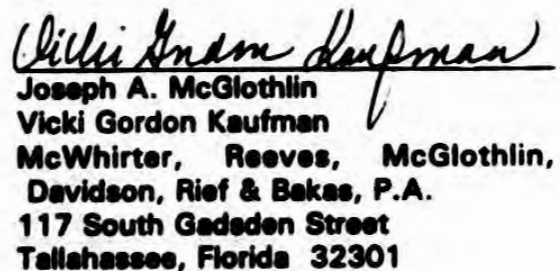 Vicki Gordon Kaufman
Joseph A. McGlothlin
Vicki Gordon Kaufman
McWhirter, Reeves, McGlothlin,
Davidson, Rief & Bakas, P.A.
117 South Gadsden Street
Tallahassee, Florida 32301